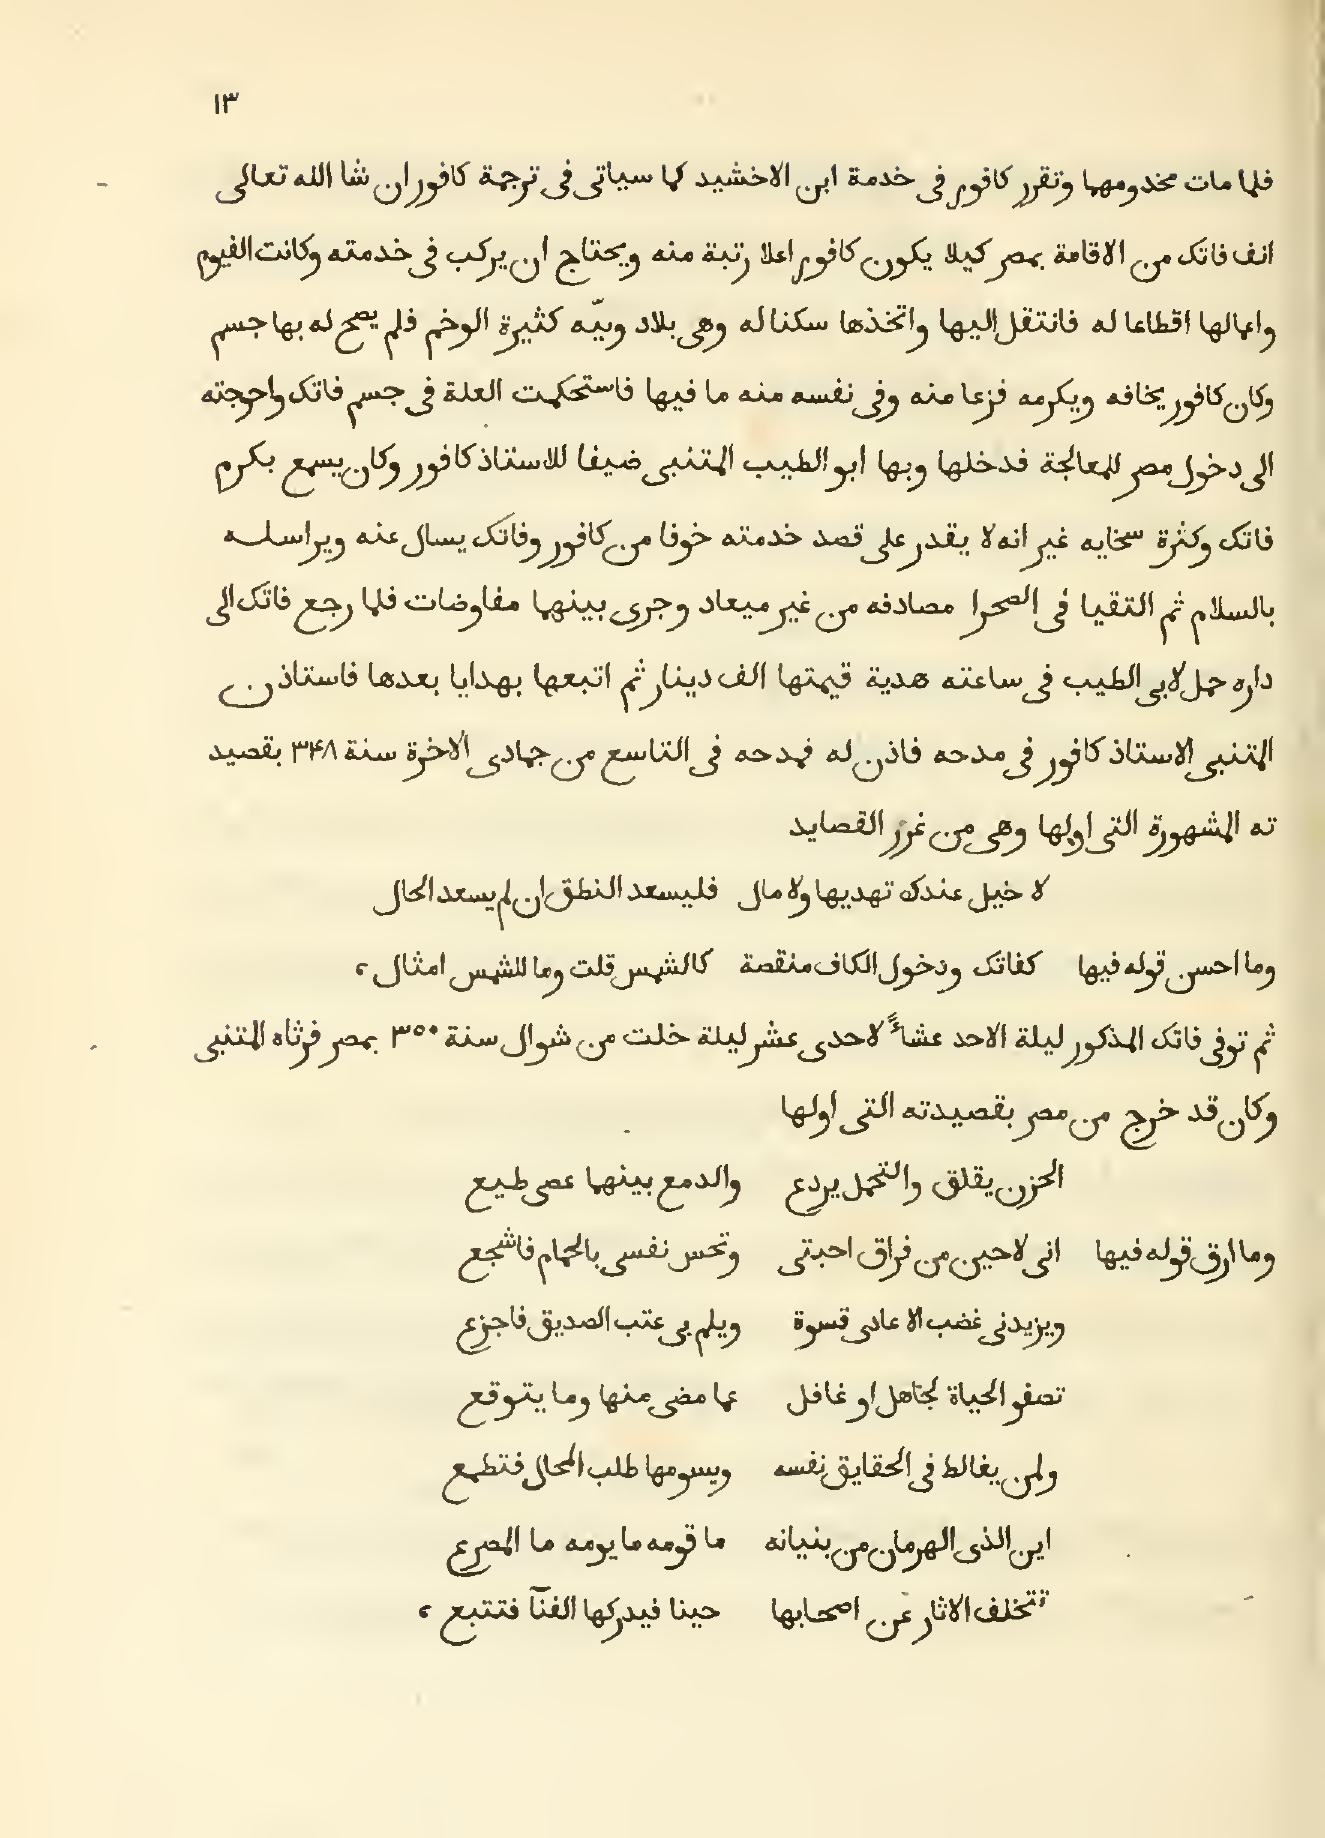 ١٣
فلما مات مخدومهما وتقرر كافور فى خدمة ابن الاخشيد كما سياتى فى ترجمة كافور ان شا الله تعالى
انف فاتك من الاقامة بمصر كيلا يكون كافور اعلا رتبة منه ويحتاج ان يركب فى خدمته وكانت الفيوم
واعمالها اقطاعا له فانتقل اليها واتخذها سكنا له وهى بلاد وبيّه كثيرة الوخم فلم يصح له بها جسم
وكان كافور يخافه ويكرمه فزعا منه وفى نفسه منه ما فيها فاستحكمت العلة فى جسم فاتك واحوجته
الى دخول مصر للمعالجة فدخلها وبها ابو الطيب المتنبى ضيفا للاستاذ كافور وكان يسمع بكرم
فاتك وكثرة سخايه غير انه لا يقدر على قصد خدمته خوفا من كافور وفاتك يسال عنه ويراسله
بالسلام ثم التقيا فى الصحرا مصادفه من غير ميعاد وجرى بينهما مفاوضات فلما رجع فاتك الى
داره حمل لابى الطيب فى ساعته هدية قيمتها الف دينار ثم اتبعها بهدايا بعدها فاستاذن
المتنبى الاستاذ كافور فى مدحه فاذن له فمدحه فى التاسع من جمادى الاخرة سنة ٣۴٨ بقصيد
ته المشهورة التى اولها وهى من غرر القصايد
لا خيل عندك تهديها ولا مال فليسعد النطق ان لم يسعد الحال
وما احسن قوله فيها كفاتك ودخول الكاف منقصة كالشمس قلت وما للشمس امثال ،
ثم توفى فاتك المذكور ليلة الاحد عشاءً لاحدى عشر ليلة خلت من شوال سنة ٣٥٠ بمصر فرثاه المتنبى
وكان قد خرج من مصر بقصيدته التى اولها
الحزن يقلق والتجمل يردع والدمع بينهما عصى طيع
وما ارق قوله فيها انى لاحين من فراق احبتى وتحس نفسى بالحمام فاشجع
ويزيدنى غضب الاعادى قسوة ويلم بى عتب الصديق فاجزع
تصفو الحياة لجاهل او غافل عما مضى منها وما يتوقع
ولمن يغالط فى الحقايق نفسه ويسومها طلب المحال فتطمع
اين الذى الهرمان من بنيانه ما قومه ما يومه ما المصرع
تتخلف الاثار عن اصحابها حينا فيدركها الفنآ فتتبع ،